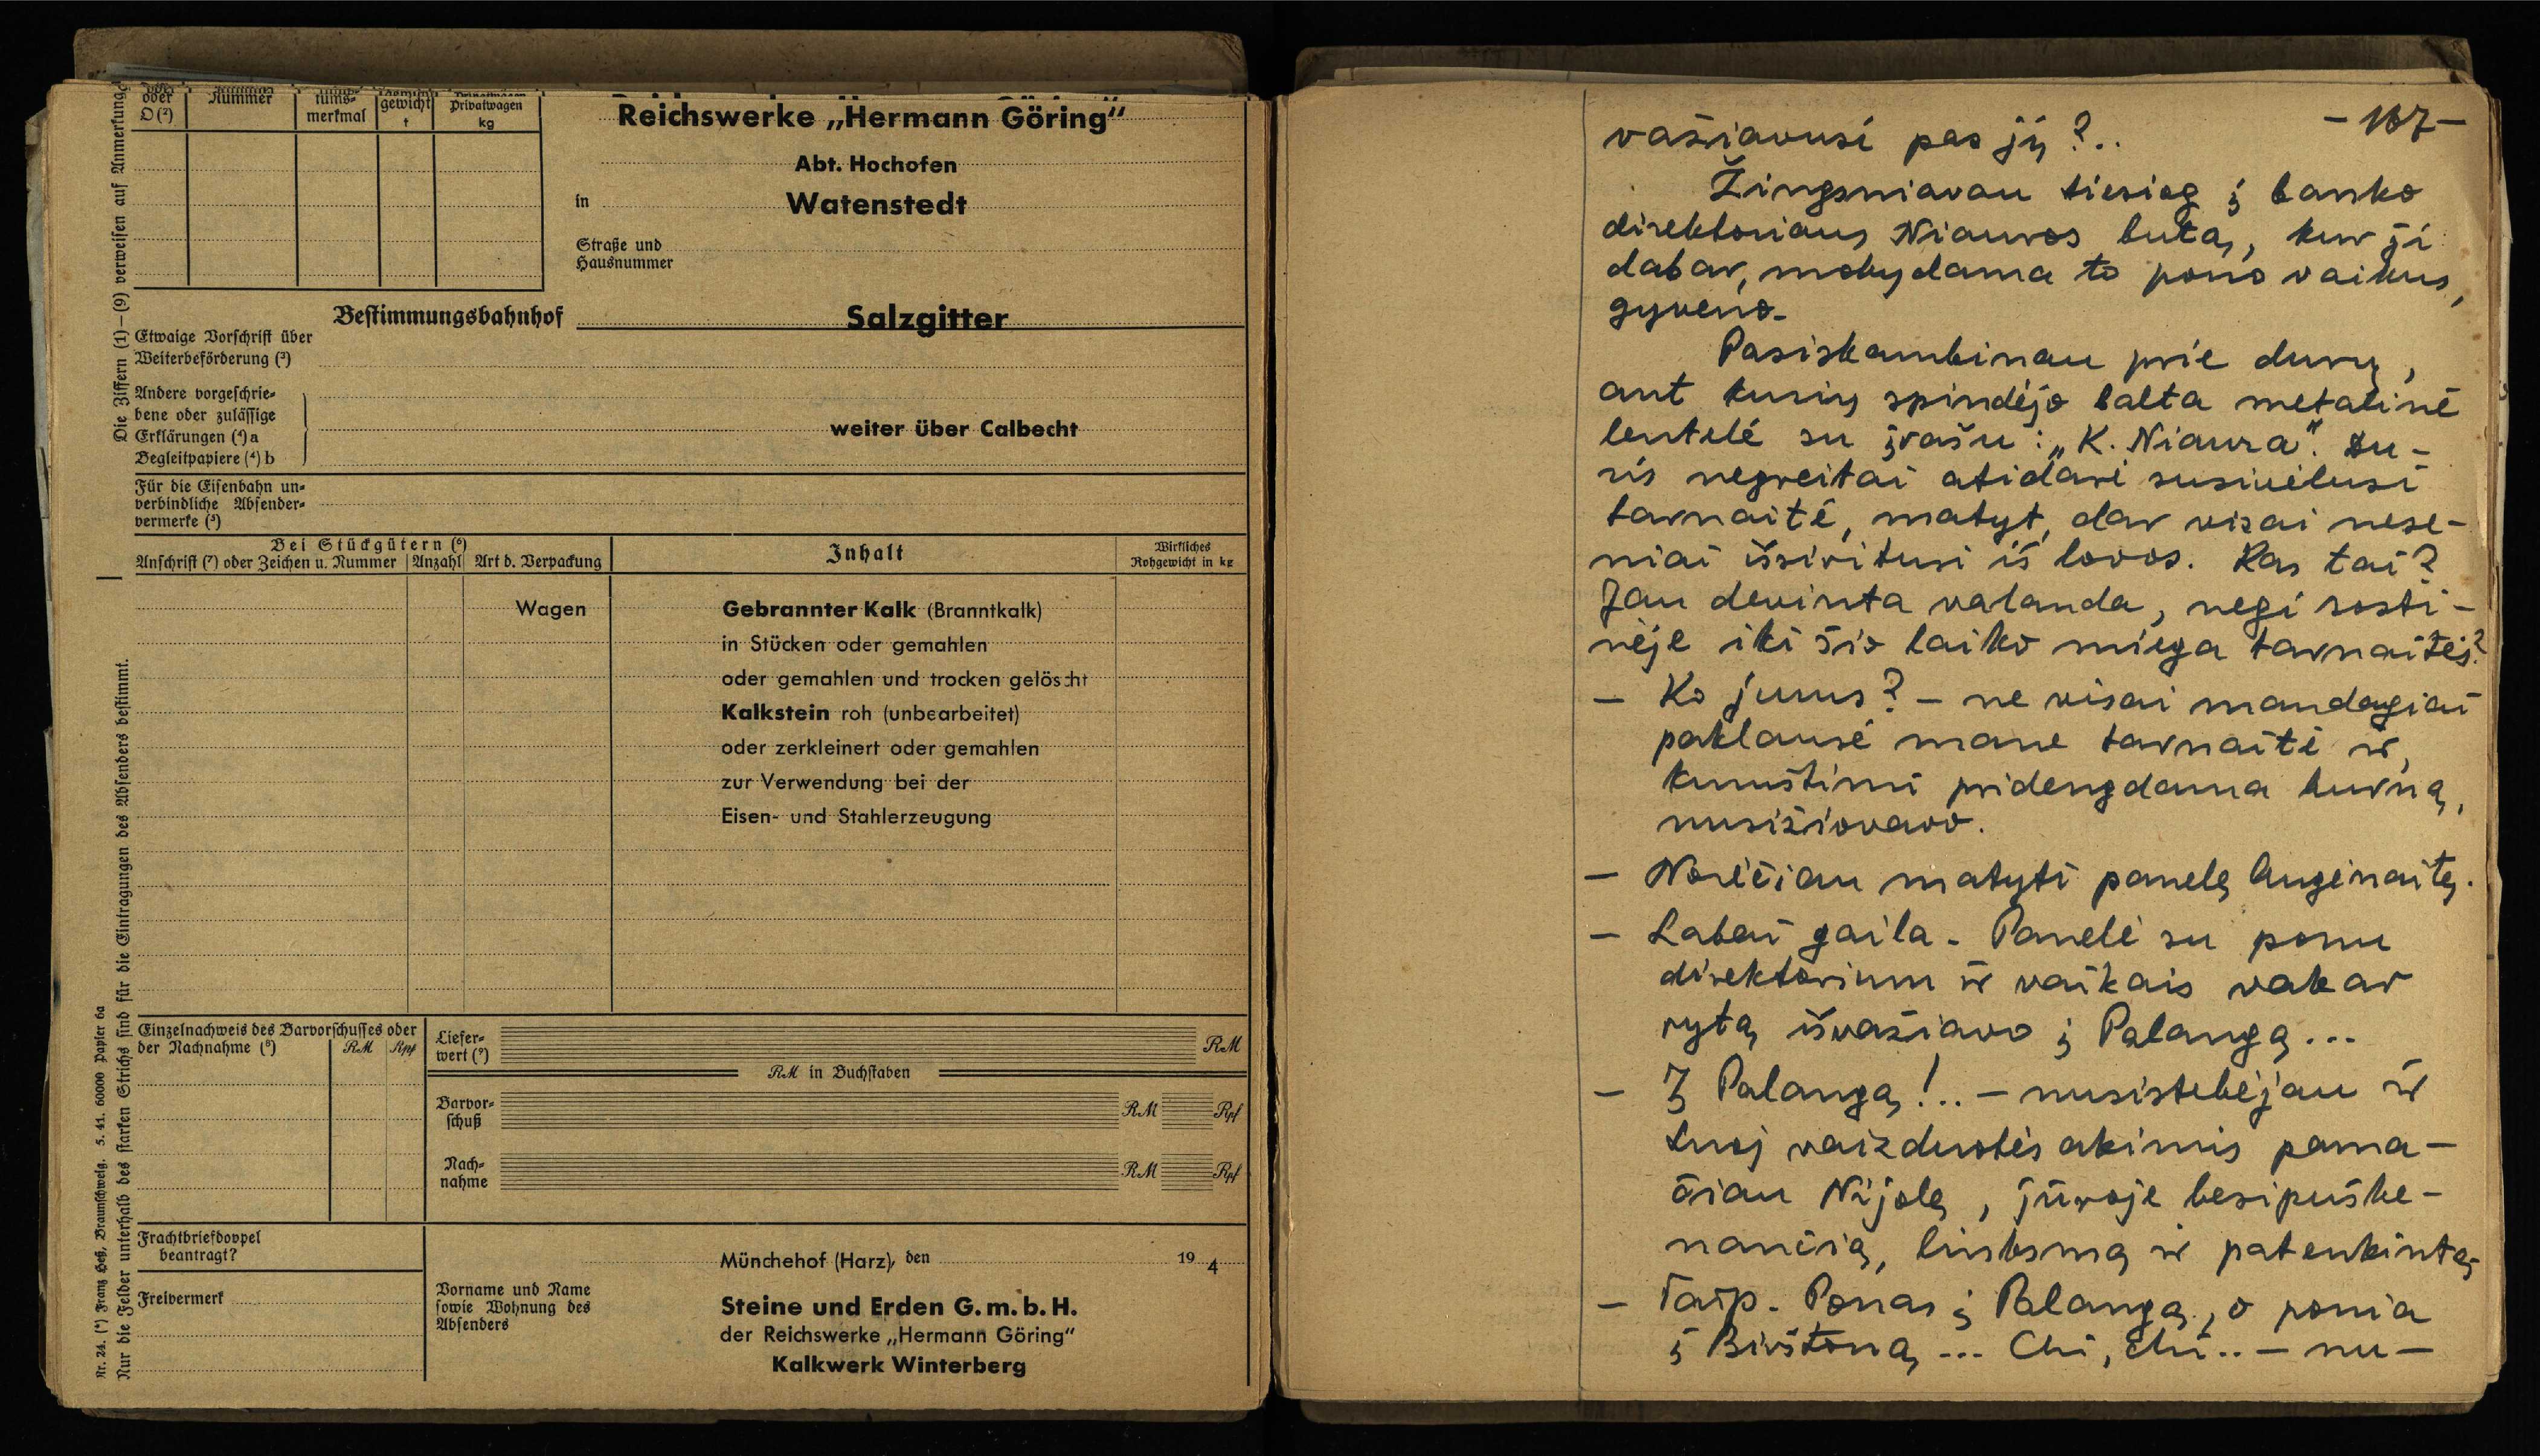 oder
D (²)
Nummer
tums-
merkmal
gewicht
t
Privatwagen
kg
Die Ziffern (1)–(9) verweisen auf Anmerkung
Reichswerke „Hermann Göring“
Abt. Hochofen
in
Watenstedt
Straße und
Hausnummer
Bestimmungsbahnhof
Salzgitter
Etwaige Vorschrift über
Weiterbeförderung (³)
Andere vorgeschrie-
bene oder zulässige
Erklärungen (⁴) a
Begleitpapiere (⁴) b
weiter über Calbecht
Für die Eisenbahn un-
verbindliche Absender-
vermerke (⁵)
Bei Stückgütern (⁶)
Anschrift (⁷) oder Zeichen u. Nummer
Anzahl
Art d. Verpackung
Inhalt
Wirkliches
Rohgewicht in kg
Wagen
Gebrannter Kalk (Branntkalk)
in Stücken oder gemahlen
oder gemahlen und trocken gelöscht
Kalkstein roh (unbearbeitet)
oder zerkleinert oder gemahlen
zur Verwendung bei der
Eisen- und Stahlerzeugung
Einzelnachweis des Barvorschusses oder
der Nachnahme (⁸)
RM
Rpf
Liefer-
wert (⁹)
RM
RM in Buchstaben
Barvor-
schuß
RM
Rpf
Nach-
nahme
RM
Rpf
Frachtbriefdoppel
beantragt?
Freivermerk
Münchehof (Harz), den 19 4
Vorname und Name
sowie Wohnung des
Absenders
Steine und Erden G. m. b. H.
der Reichswerke „Hermann Göring“
Kalkwerk Winterberg
Nr. 24. (*) Franz Heß, Braunschweig. 5. 41. 60000 Papier 6a
Nur die Felder unterhalb des starken Strichs sind für die Eintragungen des Absenders bestimmt.
– 167 –
važiavusi pas jų?..
Žingsniavau tiesiog į banko
direktoriaus Niauros butą, kur ji
dabar, mokydama to pono vaikus,
gyveno.
Pasiskambinau prie durų,
ant kurių spindėjo balta metalinė
lentelė su įrašu: „K. Niaura“. Du-
ris negreitai atidarė susivėlusi
tarnaitė, matyt, dar visai nese-
niai išsiritusi iš lovos. Kas tai?
Jau devinta valanda, negi sosti-
nėje iki šio laiko miega tarnaitės?
– Ko jums? – ne visai mandagiai
paklausė mane tarnaitė ir,
kumštimi pridengdama burną,
nusižiovavo.
– Norėčiau matyti panelę Auginaitę.
– Labai gaila. Panelė su ponu
direktorium ir vaikais vakar
rytą išvažiavo į Palangą...
– Į Palangą!.. – nusistebėjau ir
tuoj vaizduotės akimis pama-
čiau Nijolę, jūroje besipuške-
nančią, linksmą ir patenkintą.
– Taip. Ponas į Palangą, o ponia
į Birštoną... Chi, chi.. – nu–